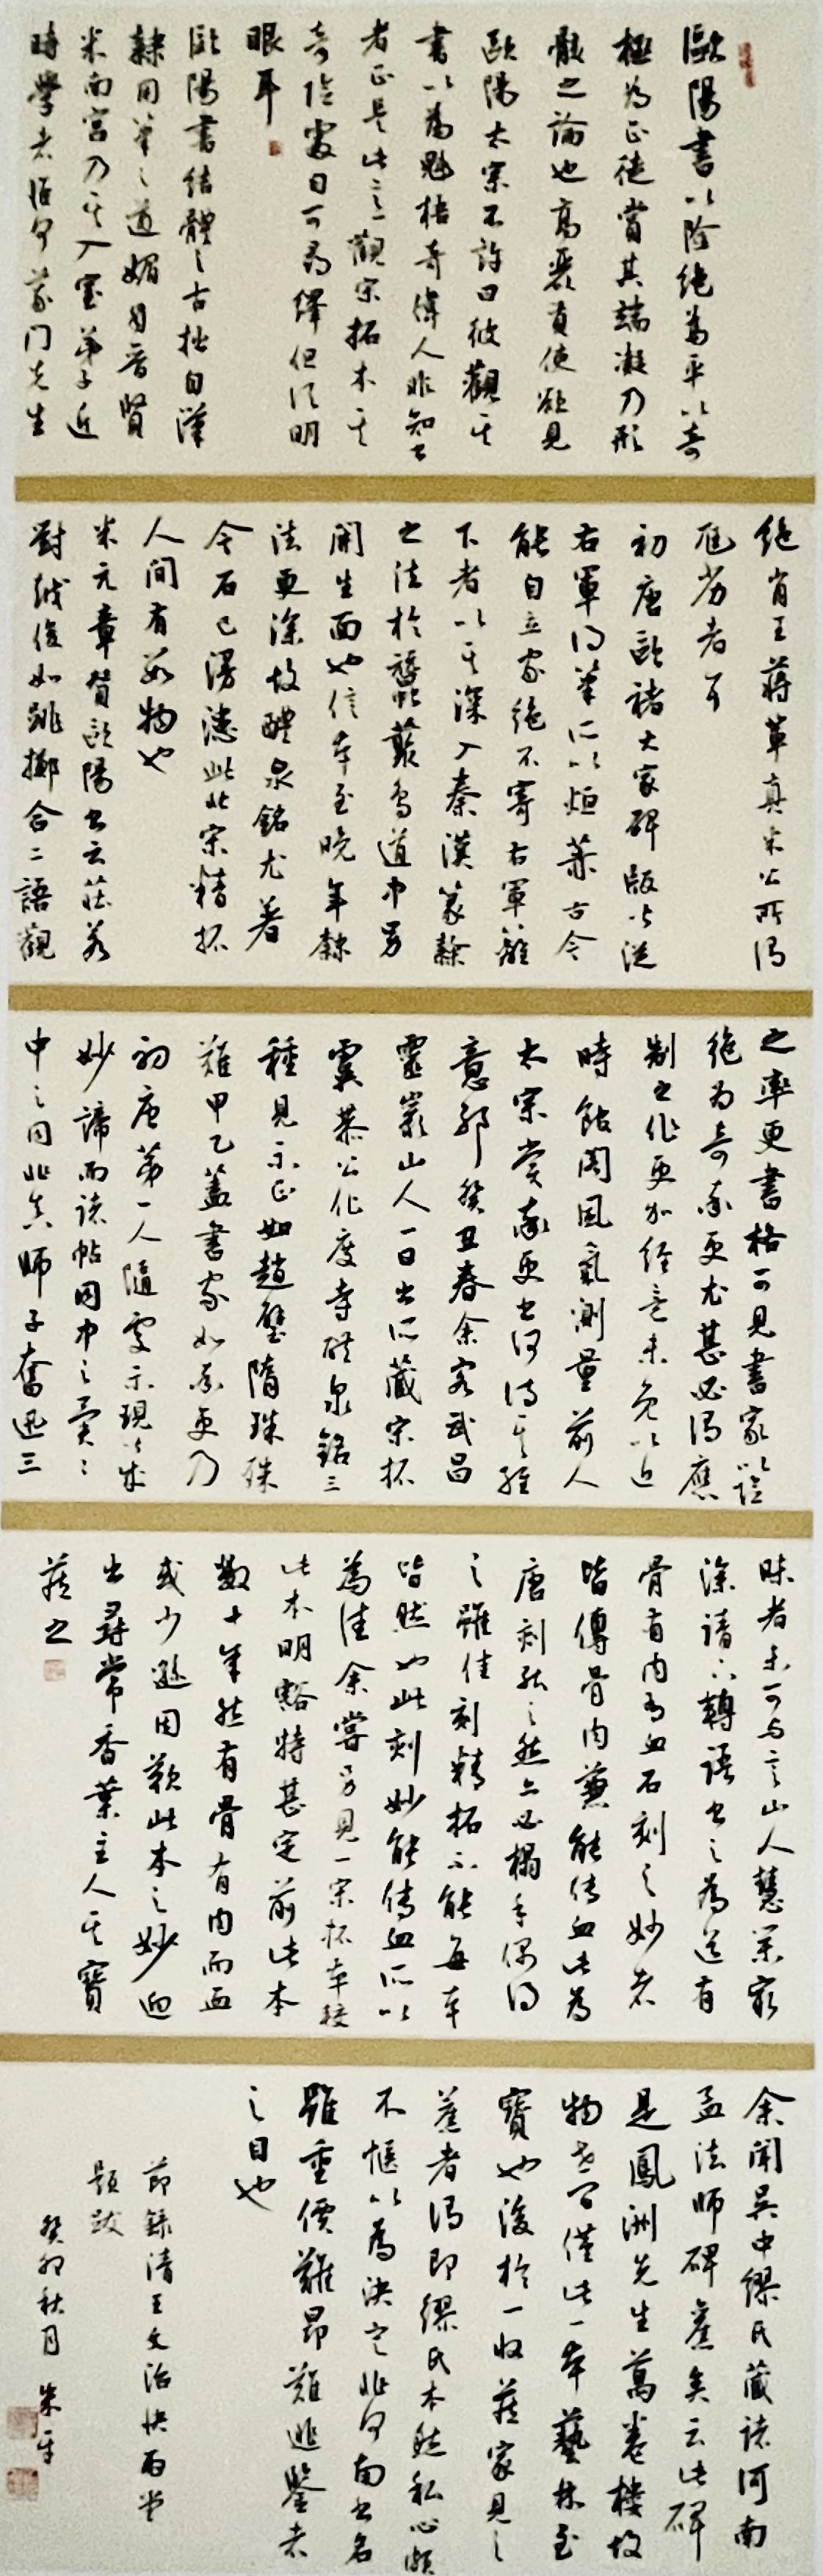 歐陽書以險絕為平以奇
極為正徒賞其端凝乃形
骸之論也高麗貢使欲見
歐陽太宗不許曰彼觀其
書以為魁梧奇偉人非知書
者正是此意觀宋拓本其
奇險處日可尋繹但須明
眼耳
歐陽書結體之古拙自漢
隸用筆之遒媚自晉賢
米南宮乃其入室弟子近
時學者惟多蒙門先生
絕肖王蔣輩真米公所謂
尪劣者耳
初唐歐褚大家碑版皆從
右軍得筆所以烜萊古今
能自立家絕不寄右軍籬
下者以其深入秦漢篆隸
之法於蠶叢鳥道中另
開生面也信本至晚年隸
法更深故醴泉銘尤著
今石已漫漶此北宋精拓
人間有數物也
米元章贊歐陽書云莊若
對越俊如跳擲合二語觀
之率更書格可見書家以險
絕為奇率更尤甚必得應
制之作更加經意未免以近
時館閣風氣測量前人
太宗賞率更書何得其經
意邪癸丑春余客武昌
靈巖山人一日出所藏宋拓
虞恭公化度寺醴泉銘三
種見示正如趙璧隋珠殊
難甲乙蓋書家如率更乃
初唐第一人隨處示現以成
妙諦而諸帖同中之異異
中之同非真師子奮迅三
昧者未可與言山人慧業最
深請下轉語書之為送有
骨有肉有血石刻之妙者
皆傳骨肉兼能傳血此為
唐刻張之然亦必榻手偶得
之雖佳刻精拓不能每本
皆然也此刻妙能傳血所以
為佳余嘗另見一宋拓本較
此本明豁特甚定前此本
數十年然有骨有肉而血
或少遜因歎此本之妙迥
出尋常香葉主人其寶
藏之
余聞吳中繆氏藏諸河南
孟法師碑舊矣云此碑
是鳳洲先生萬卷樓故
物世間僅此一本藝林至
寶也後於一收藏家見之
舊者得即繆氏本然私心頗
不愜以為決定非河南書名
雖重價難昂難逃鑒者
之目也
節錄清王文治快雨堂
題跋
癸卯秋月 朱平